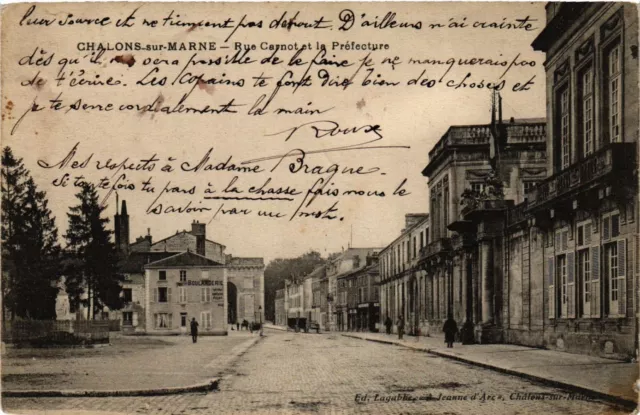 leur source et ne tiennent pas debout. D'ailleurs n'ai crainte
CHALONS-sur-MARNE – Rue Carnot et la Préfecture
dès qu'il me sera possible de le faire je ne manquerais pas
de t'écrire. Les Copains te font dire bien des choses et
je te serre cordialement la main
Roux
Mes respects à Madame Braque.
Si toutefois tu pars à la chasse fais nous le
savoir par un mot.
BOULANGERIE
Ed. Lagabbe, "A Jeanne d'Arc", Châlons-sur-Marne